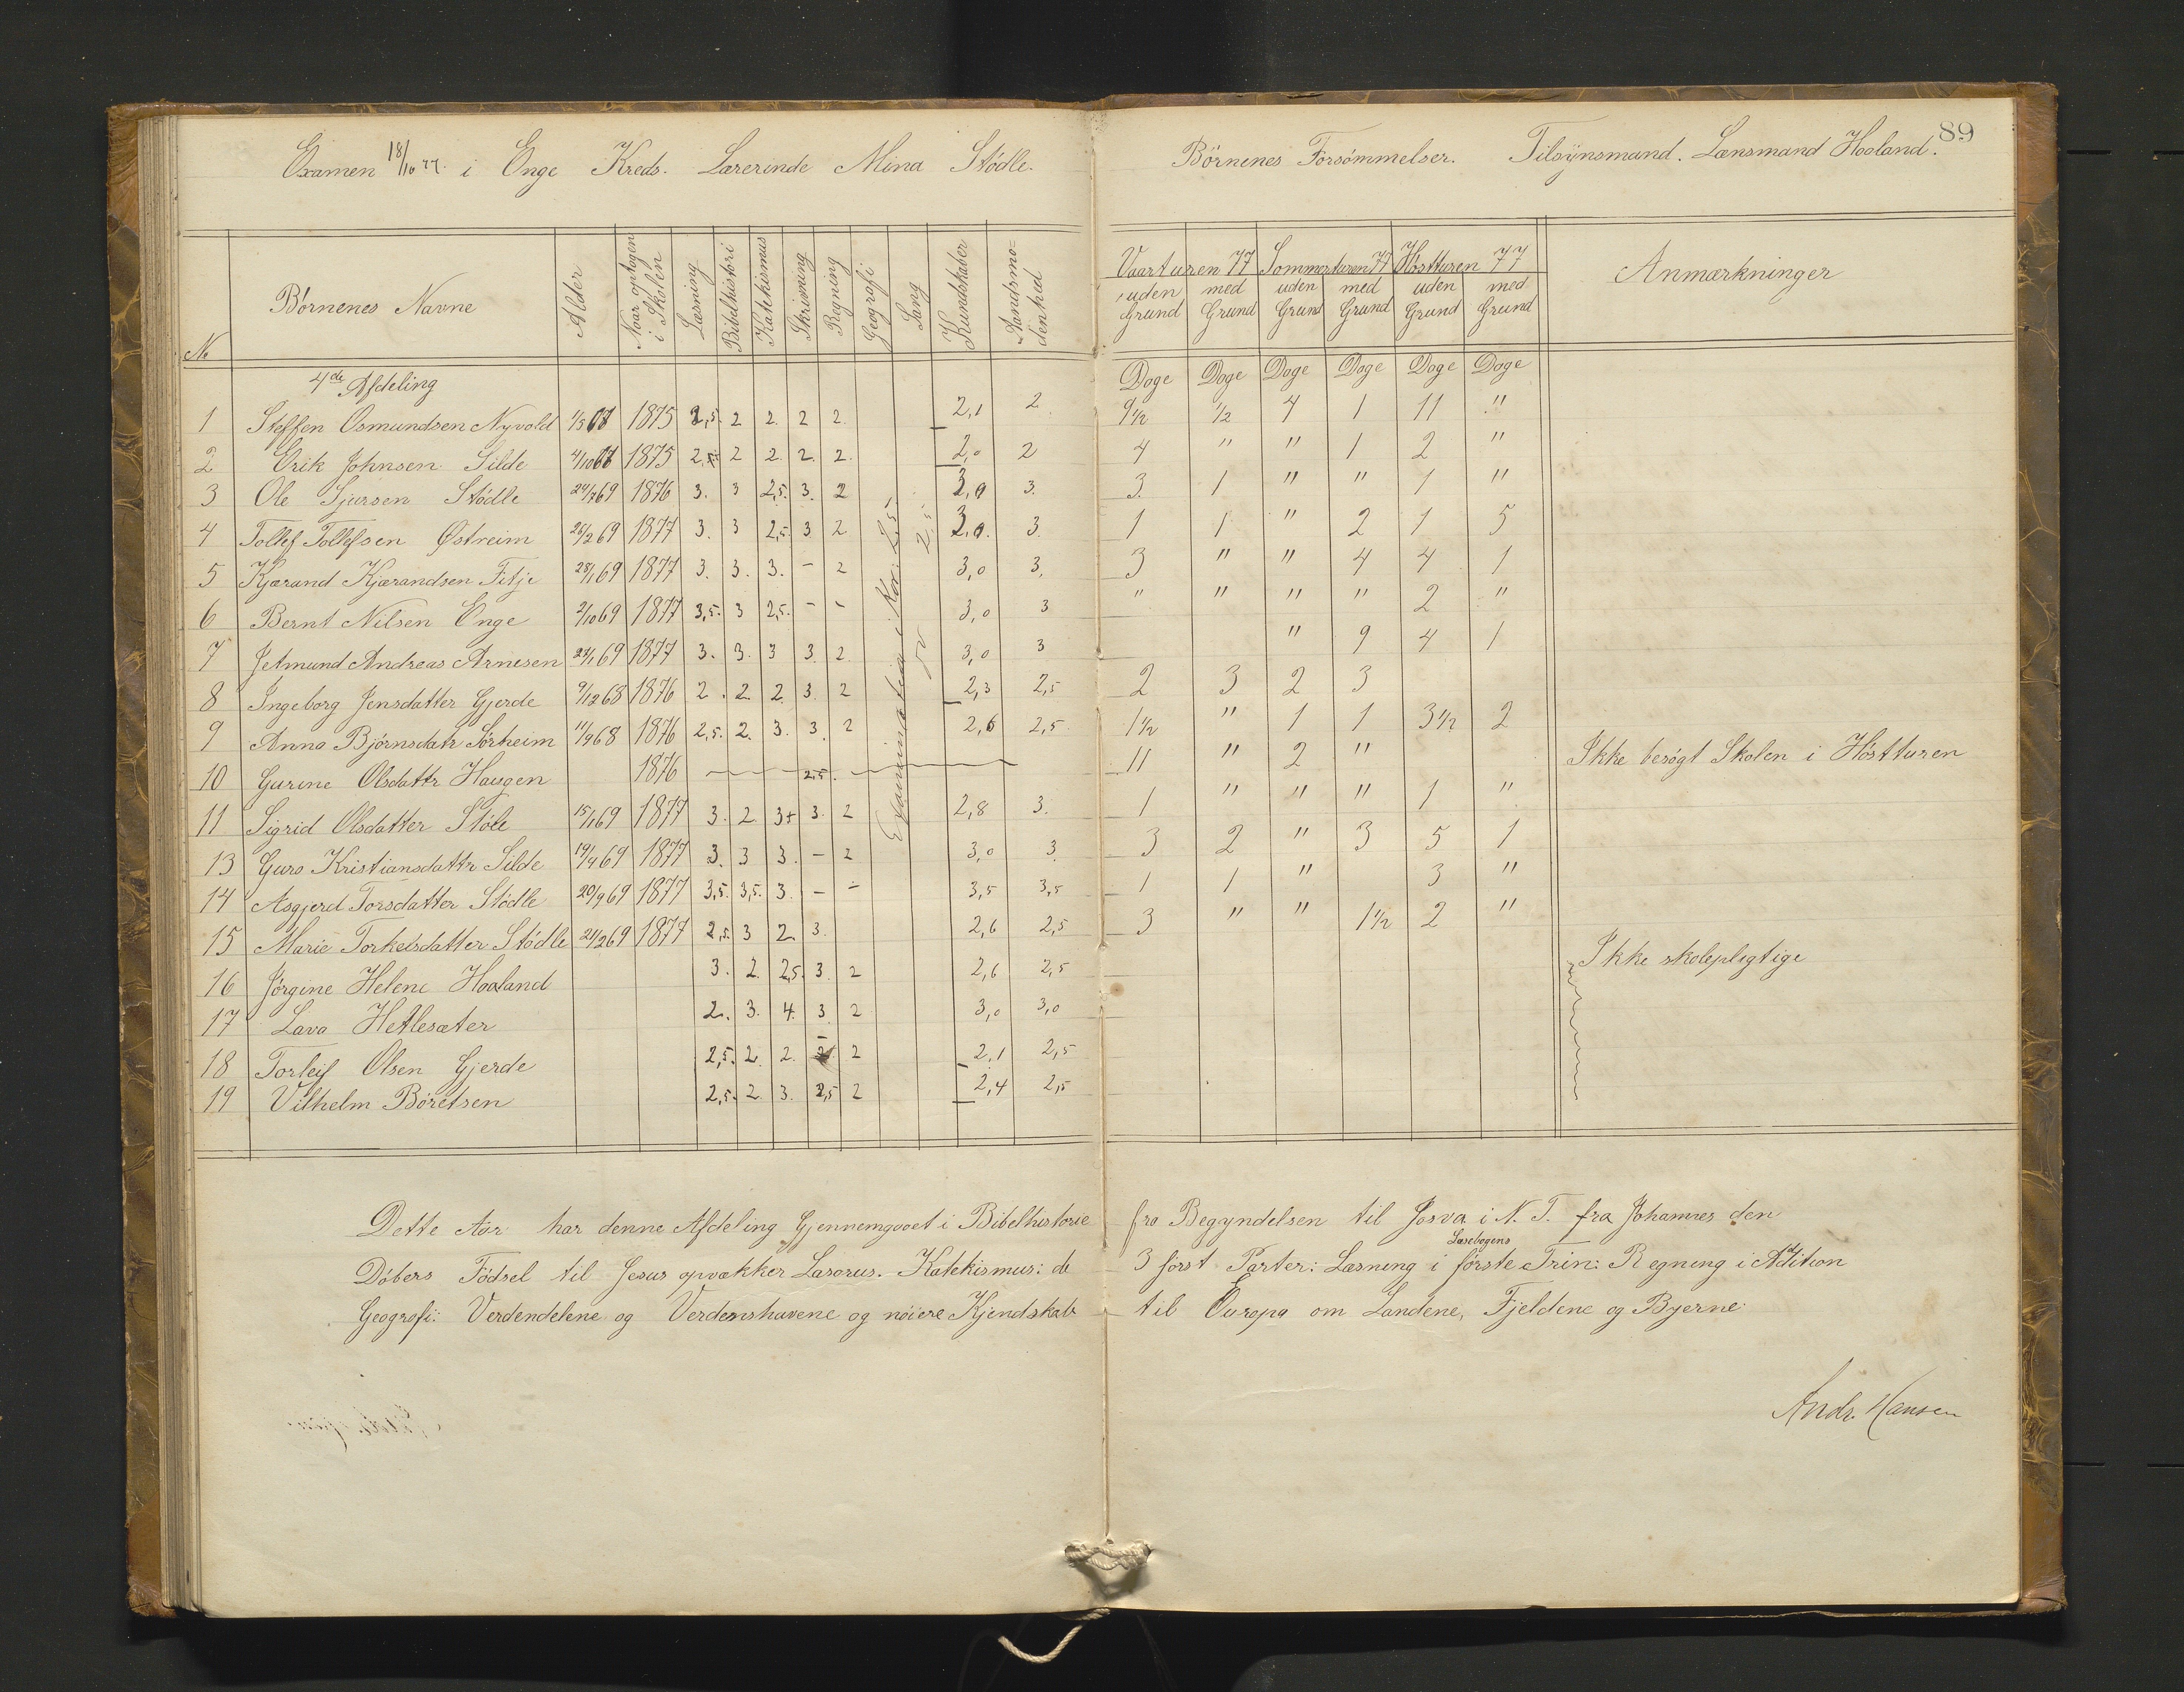 Examen 18/10 77. i Enge Kreds. Lærerinde Mina Stødle.
Børnenes Forsømmelser. Tilsynsmand. Lænsmand Haaland.
89
No | Børnenes Navne | Alder | Naar optagen i Skolen | Læsning | Bibelhistori | Katekismus | Skrivning | Regning | Geografi | Sang | Kundskaber | Aandsmodenhed
Vaarturen 77 | Sommerturen 77 | Høstturen 77 | Anmærkninger
uden Grund | med Grund | uden Grund | med Grund | uden Grund | med Grund
Dage | Dage | Dage | Dage | Dage | Dage
4de Afdeling
1 Steffen Osmundsen Nyvold 1/5 67 1875 2,5. 2 2. 2 2. 2,1 2 9 1/2 1/2 4 1 11 "
2 Erik Johnsen Silde 4/10 67 1875 2,5. 2 2. 2. 2. 2,0 2 4 " " 1 2 "
3 Ole Sjursen Stødle 24/7 69 1876 3. 3 2,5. 3. 2 3,0 3. 3. 1 " " 1 "
4 Tollef Tollefsen Østreim 26/2 69 1877 3. 3 2,5. 3 2 3,0. 3. 1 1 " 2 1 5
5 Kjærand Kjærandsen Fitje 28/1 69 1877 3. 3. 3. - 2 3,0 3, 3 " " 4 4 1
6 Bernt Nilsen Enge 2/10 69 1877 3,5. 3 2,5. - - 3,0 3 " " " " 2 "
7 Jetmund Andreas Arnesen 24/1 69 1877 3. 3. 3 3. 2 3,0 3 " 9 4 1
8 Ingeborg Jensdatter Gjerde 9/12 68 1876 2. 2. 2 3. 2 2,3 2,5 2 3 2 3
9 Anna Bjørnsdatr Sørheim 11/9 68 1876 2,5. 2. 3. 3. 2 2,6 2,5 1 1/2 " 1 1 3 1/2 2
10 Gurine Olsdattr Haugen 1876 2,5. 11 " 2 " Ikke besøgt Skolen i Høstturen
11 Sigrid Olsdatter Støle 15/1 69 1877 3. 2 3+ 3. 2 2,8 3. 1 " " " 1 "
13 Guro Kristiansdattr Silde 19/4 69 1877 3. 3 3. - 2 3,0 3 3 2 " 3 5 1
14 Asgjerd Torsdatter Stødle 20/9 69 1877 3,5. 3,5. 3. - - 3,5 3,5 1 1 " 3 "
15 Marie Torkelsdatter Stødle 21/2 69 1877 2,5. 3 2. 3. 2,6 2,5 3 " " 1 1/2 2 "
16 Jørgine Helene Haaland 3. 2. 2,5. 3. 2 2,6 2,5 Ikke skolepligtige
17 Lava Hetlesæter 2. 3. 4. 3. 2 3,0 3,0
18 Torleif Olsen Gjerde 2,5. 2 2. 2 2 2,1 2,5
19 Vilhelm Børetsen 2,5. 2 3. 2,5 2 2,4 2,5
Examination i Kor: 2,5
2,5
Dette Aar har denne Afdeling Gjennemgaaet i Bibelhistorie fra Begyndelsen til Josva i N. T. fra Johannes den
Døbers Fødsel til Jesus opvækker Lasarus. Katekismus: de 3 først Parter: Læsning i Læsebogens første Trin: Regning i Adition
Geografi: Verdendelene og Verdenshavene og nøiere Kjendskab til Europa om Landene, Fjeldene og Byerne.
Andr. Hansen